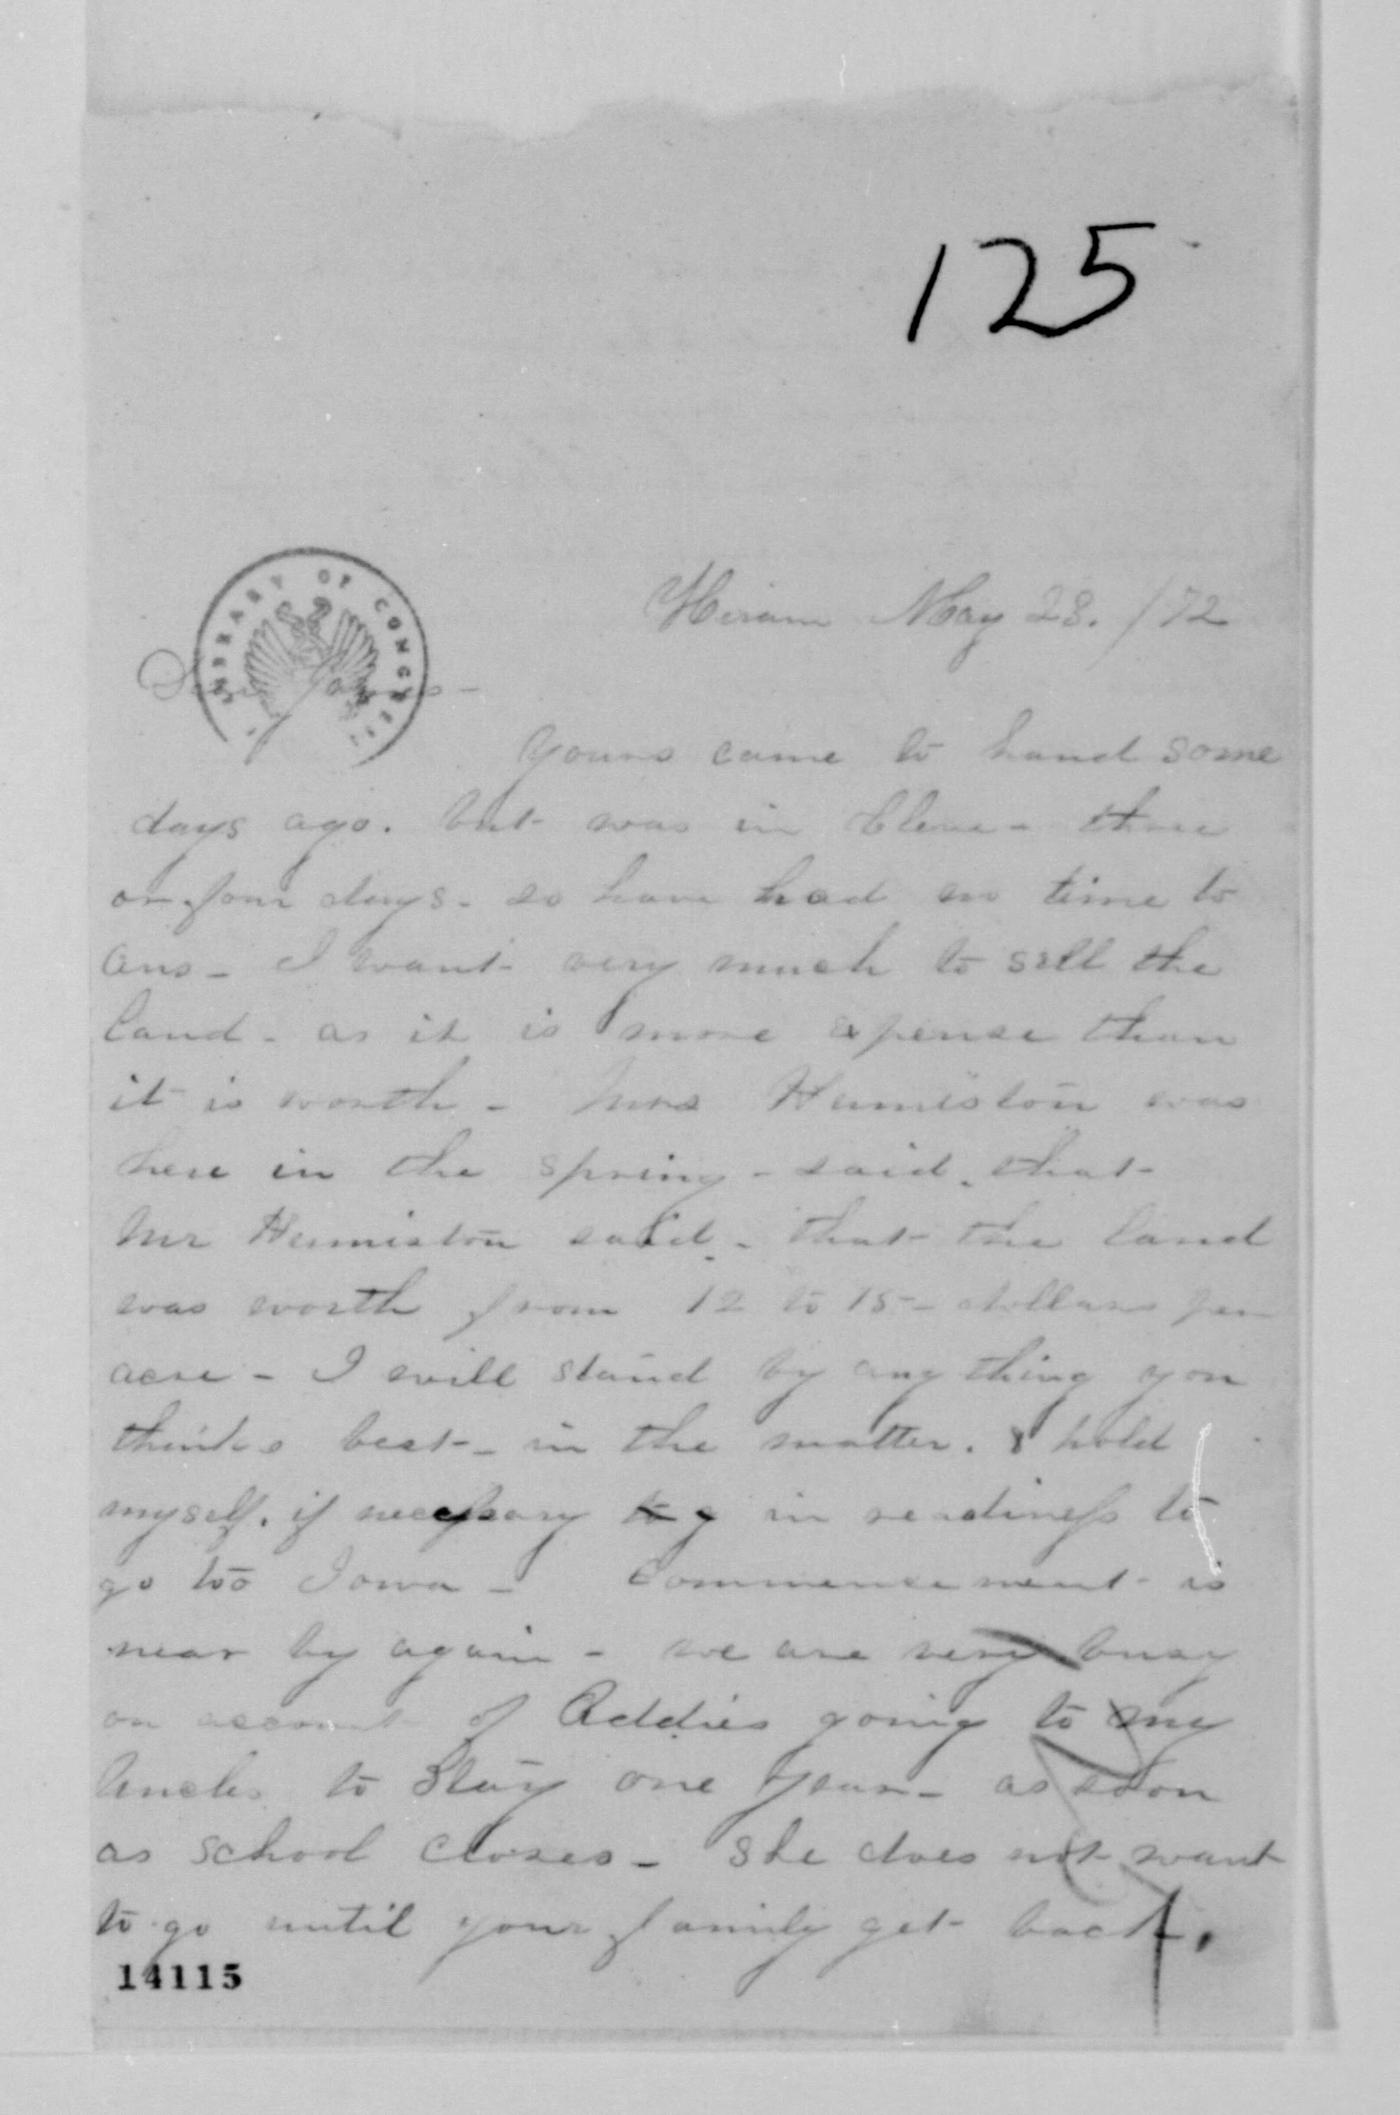 125
Hiram May 28. /72
LIBRARY OF CONGRESS
Dear James -
Yours came to hand some
days ago. but was in Cleve - three
or four days - so have had no time to
ans - I want very much to sell the
land - as it is more expense than
it is worth - Mrs Humiston was
here in the spring - said that
Mr Humiston said - that the land
was worth from 12 to 15 - dollars per
acre - I will stand by any thing you
thinks best - in the matter. & hold
myself. if necessary in readiness to
go too Iowa - Commencement is
near by again - we are very busy
on account of Addies going to my
Uncles to Stay one year - as soon
as school closes - She does not want
to go until your family get back.
14115